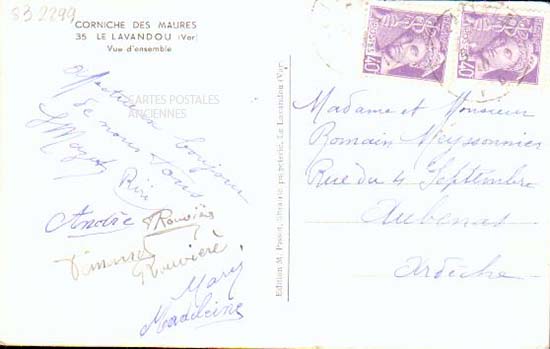 83 2299
CORNICHE DES MAURES
35 LE LAVANDOU (Var)
Vue d'ensemble
CARTES POSTALES
ANCIENNES
bonjour
de nous tous
Riri
André Rouvière
Rouviere
Mary
Madeleine
Edition M. Passot, librairie papeterie, Le Lavandou (Var)
POSTES
40
POSTES
40
Madame et Monsieur
Romain Meyssonnier
Rue du 4 Septembre
Aubenas
Ardèche